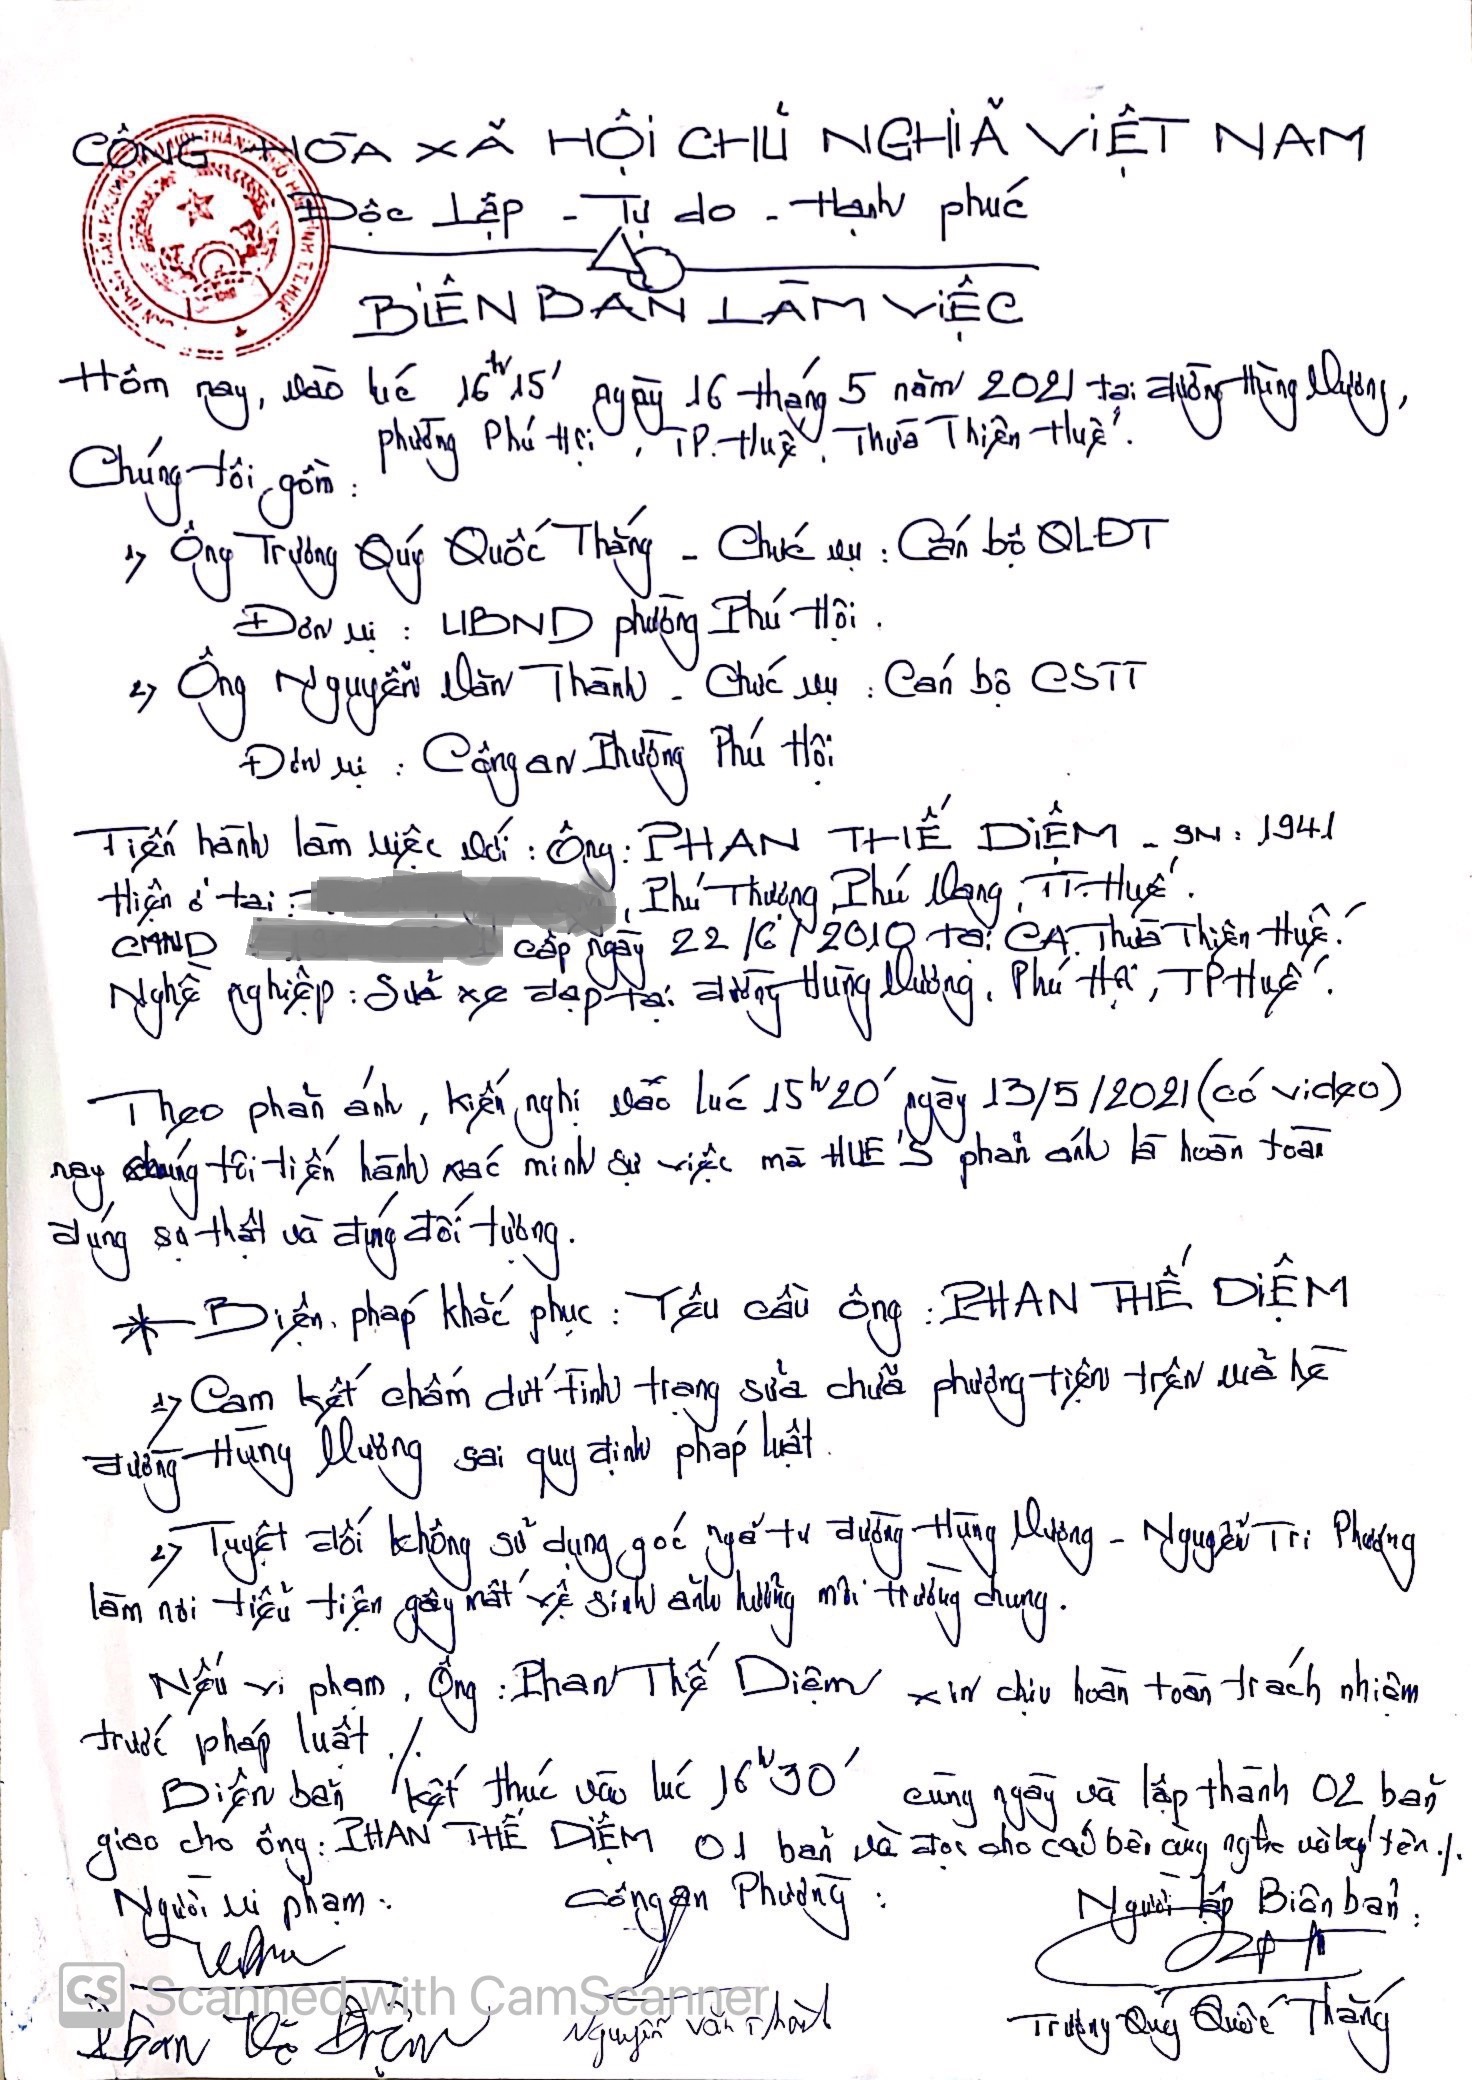 CỘNG HÒA XÃ HỘI CHỦ NGHĨA VIỆT NAM
Độc lập - Tự do - Hạnh phúc
BIÊN BẢN LÀM VIỆC
Hôm nay, vào lúc 16h15' ngày 16 tháng 5 năm 2021 tại đường Hùng Vương,
phường Phú Hội, TP. Huế, Thừa Thiên Huế.
Chúng tôi gồm:
1) Ông Trương Quý Quốc Thắng - Chức vụ: Cán bộ QLĐT
Đơn vị: UBND phường Phú Hội.
2) Ông Nguyễn Văn Thành - Chức vụ: Cán bộ CSTT
Đơn vị: Công an Phường Phú Hội
Tiến hành làm việc với: Ông: PHAN THẾ DIỆM - SN: 1941
Hiện ở tại: , Phú Thượng, Phú Vang, TT. Huế.
CMND cấp ngày 22/6/2010 tại CA. Thừa Thiên Huế.
Nghề nghiệp: Sửa xe đạp tại đường Hùng Vương, Phú Hội, TP Huế.
Theo phản ánh, kiến nghị vào lúc 15h20' ngày 13/5/2021 (có video)
nay chúng tôi tiến hành xác minh sự việc mà HUE'S phản ánh là hoàn toàn
đúng sự thật và đúng đối tượng.
* Biện pháp khắc phục: Yêu cầu ông: PHAN THẾ DIỆM
1) Cam kết chấm dứt tình trạng sửa chữa phương tiện trên vỉa hè
đường Hùng Vương sai quy định pháp luật.
2) Tuyệt đối không sử dụng góc ngã tư đường Hùng Vương - Nguyễn Tri Phương
làm nơi tiểu tiện gây mất vệ sinh ảnh hưởng môi trường chung.
Nếu vi phạm, Ông: Phan Thế Diệm xin chịu hoàn toàn trách nhiệm
trước pháp luật ./.
Biên bản kết thúc vào lúc 16h30' cùng ngày và lập thành 02 bản
giao cho ông: PHAN THẾ DIỆM 01 bản và đọc cho các bên cùng nghe và ký tên ./.
Người vi phạm: Công an Phường: Người lập Biên bản:
Scanned with CamScanner
Phan Thế Diệm Nguyễn Văn Thành Trương Quý Quốc Thắng